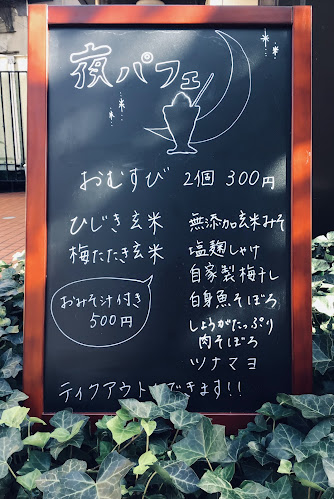 夜パフェ
おむすび 2個 300円
ひじき玄米
梅たたき玄米
おみそ汁付き
500円
無添加玄米みそ
塩麹しゃけ
自家製梅干し
白身魚そぼろ
しょうがたっぷり
肉そぼろ
ツナマヨ
テイクアウトもできます!!